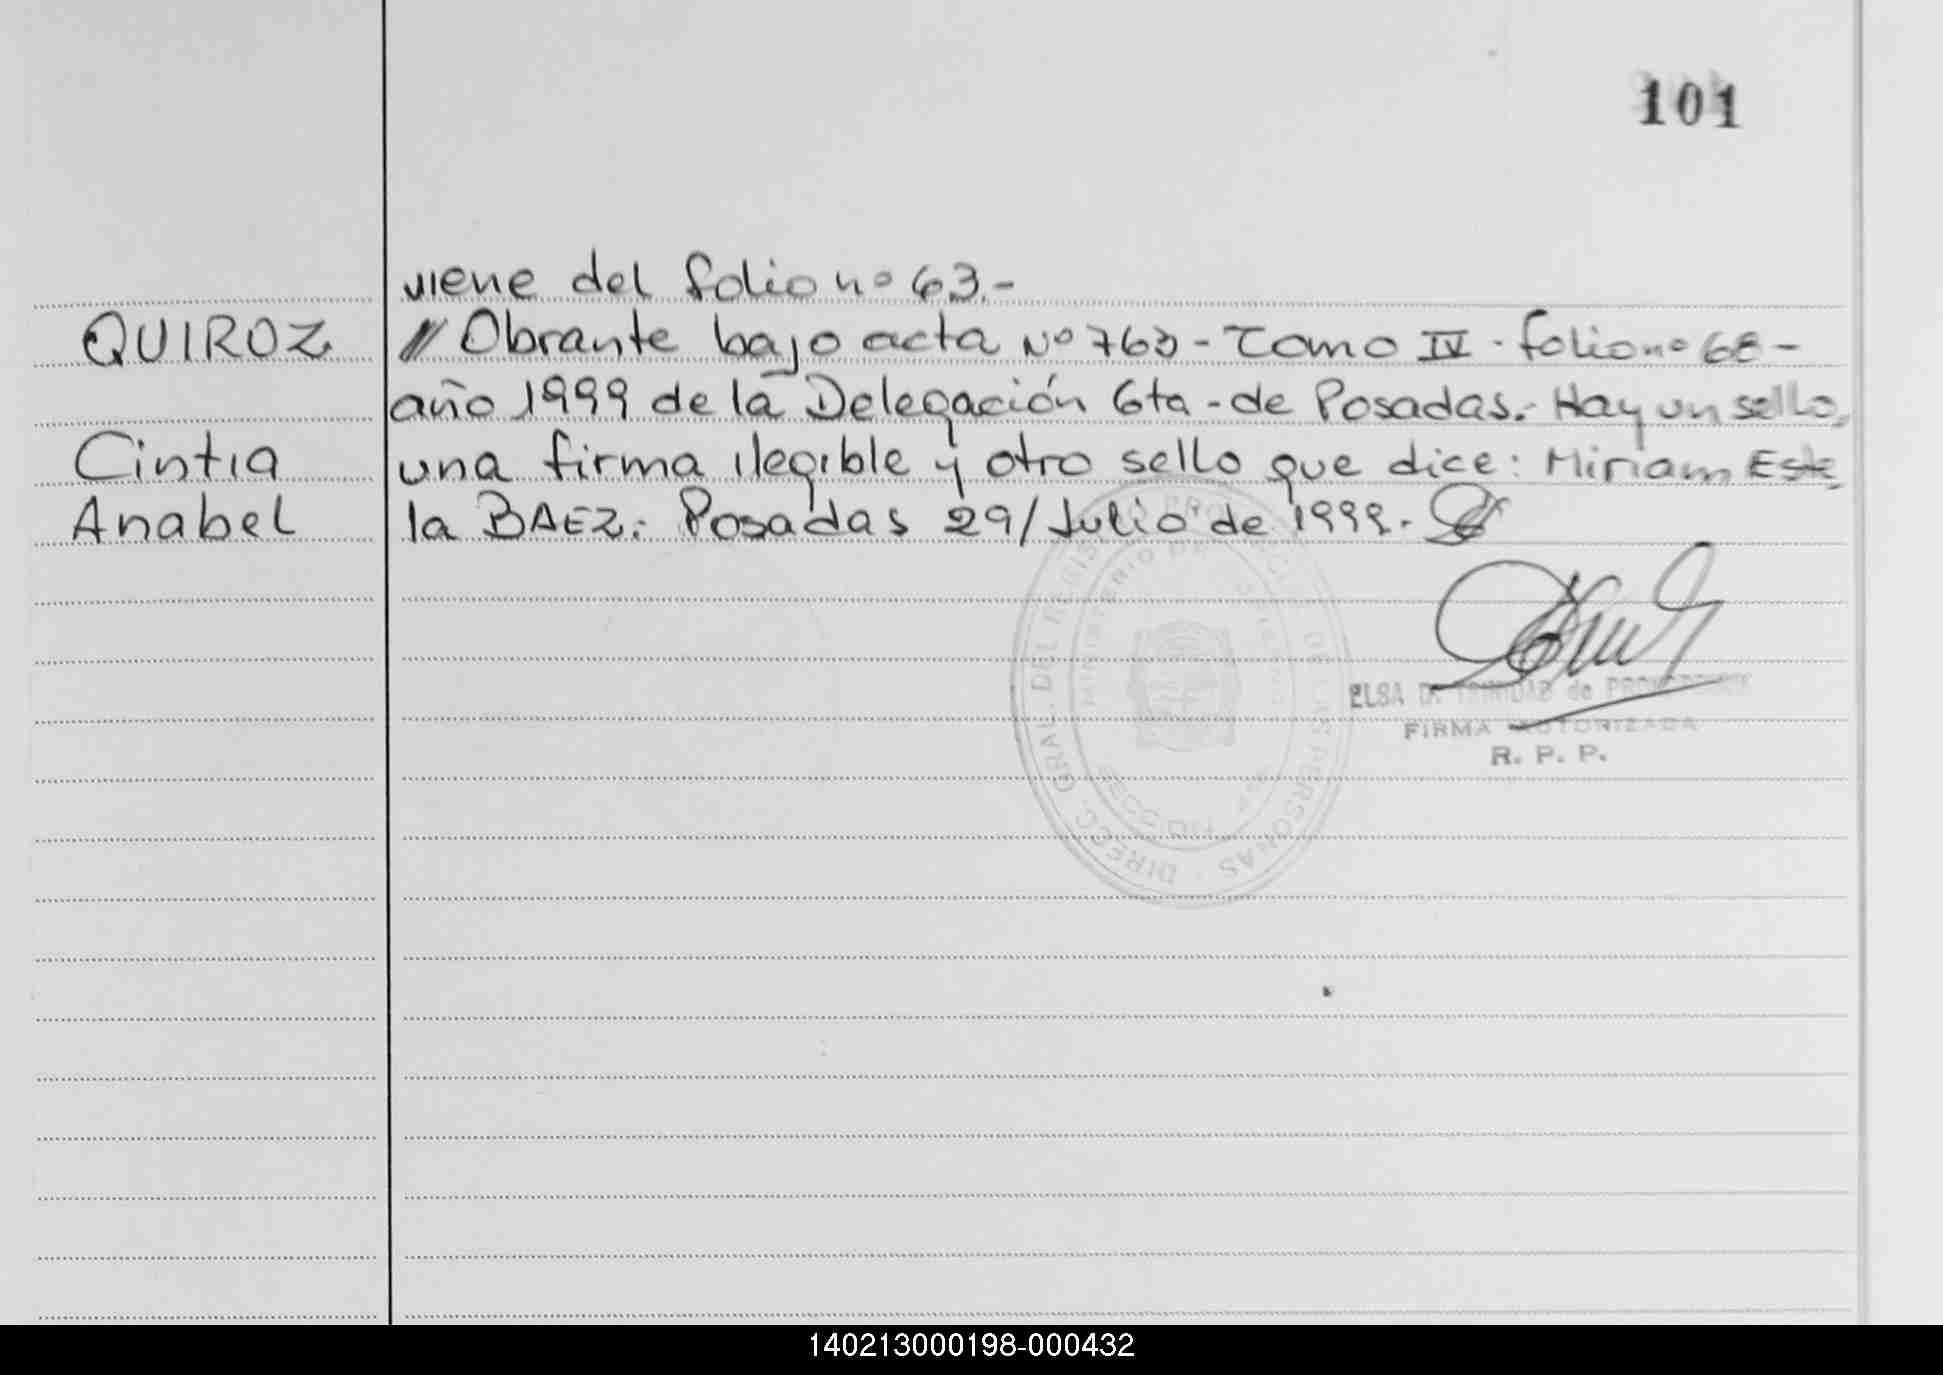 101
viene del folio nº 63.-
QUIROZ // Obrante bajo acta Nº 763 - Tomo IV - folio nº 68 -
año 1999 de la Delegación 6ta - de Posadas.- Hay un sello,
Cintia una firma ilegible y otro sello que dice: Miriam Este
Anabel la BAEZ.- Posadas 29/Julio de 1999.-
DIRECC. GRAL. DEL REGISTRO PROVINCIAL DE LAS PERSONAS
MINISTERIO DE
ELSA D. TRINIDAD de
FIRMA AUTORIZADA
R. P. P.
140213000198-000432